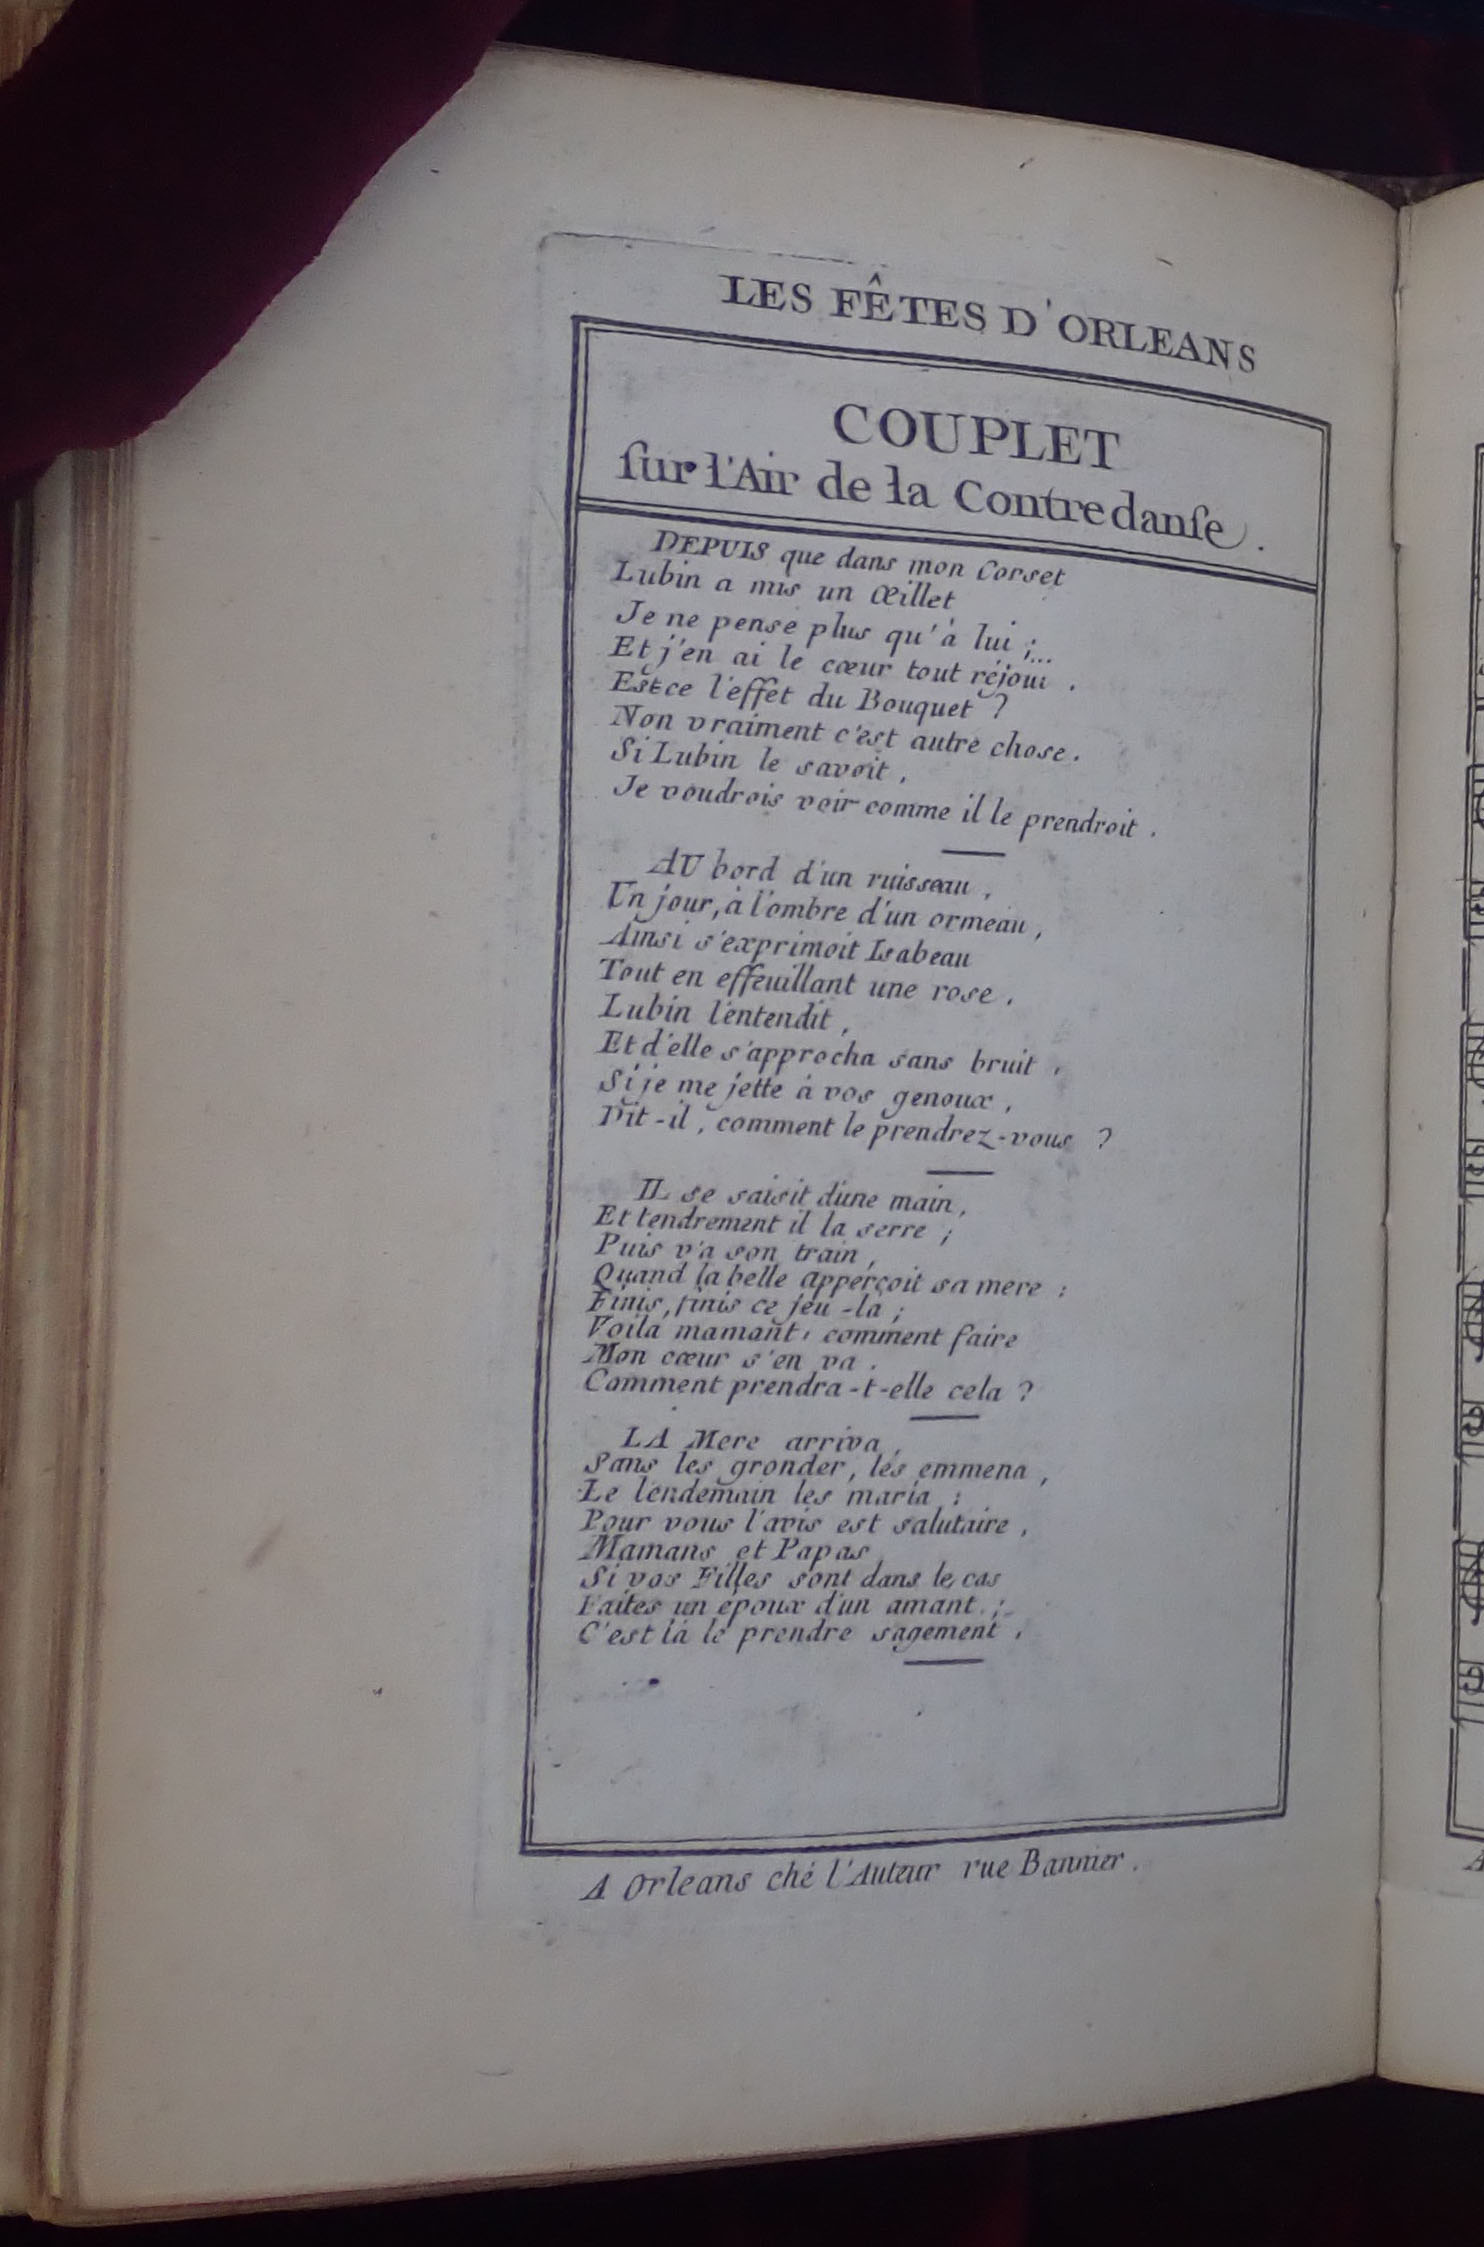 LES FÊTES D'ORLEANS
COUPLET
ſur l'Air de la Contredanſe.
DEPUIS que dans mon Corset
Lubin a mis un Œillet
Je ne pense plus qu'à lui ;...
Et j'en ai le cœur tout réjoui .
Estce l'effet du Bouquet ?
Non vraiment c'est autre chose.
Si Lubin le savoit,
Je voudrois voir comme il le prendroit .
AU bord d'un ruisseau ,
Un jour, à l'ombre d'un ormeau ,
Ainsi s'exprimoit Isabeau
Tout en effeuillant une rose .
Lubin l'entendit ,
Et d'elle s'approcha sans bruit ,
Si je me jette à vos genoux ,
Dit-il , comment le prendrez-vous ?
IL se saisit d'une main,
Et tendrement il la serre ;
Puis v'a son train ,
Quand la belle apperçoit sa mere :
Finis, finis ce jeu-la ;
Voila mamant, comment faire
Mon cœur s'en va .
Comment prendra-t-elle cela ?
LA Mere arriva ,
Sans les gronder, les emmena ,
Le lendemain les maria :
Pour vous l'avis est salutaire ,
Mamans et Papas
Si vos Filles sont dans le cas
Faites un époux d'un amant ;
C'est là le prendre sagement .
A Orleans ché l'Auteur rue Bannier .